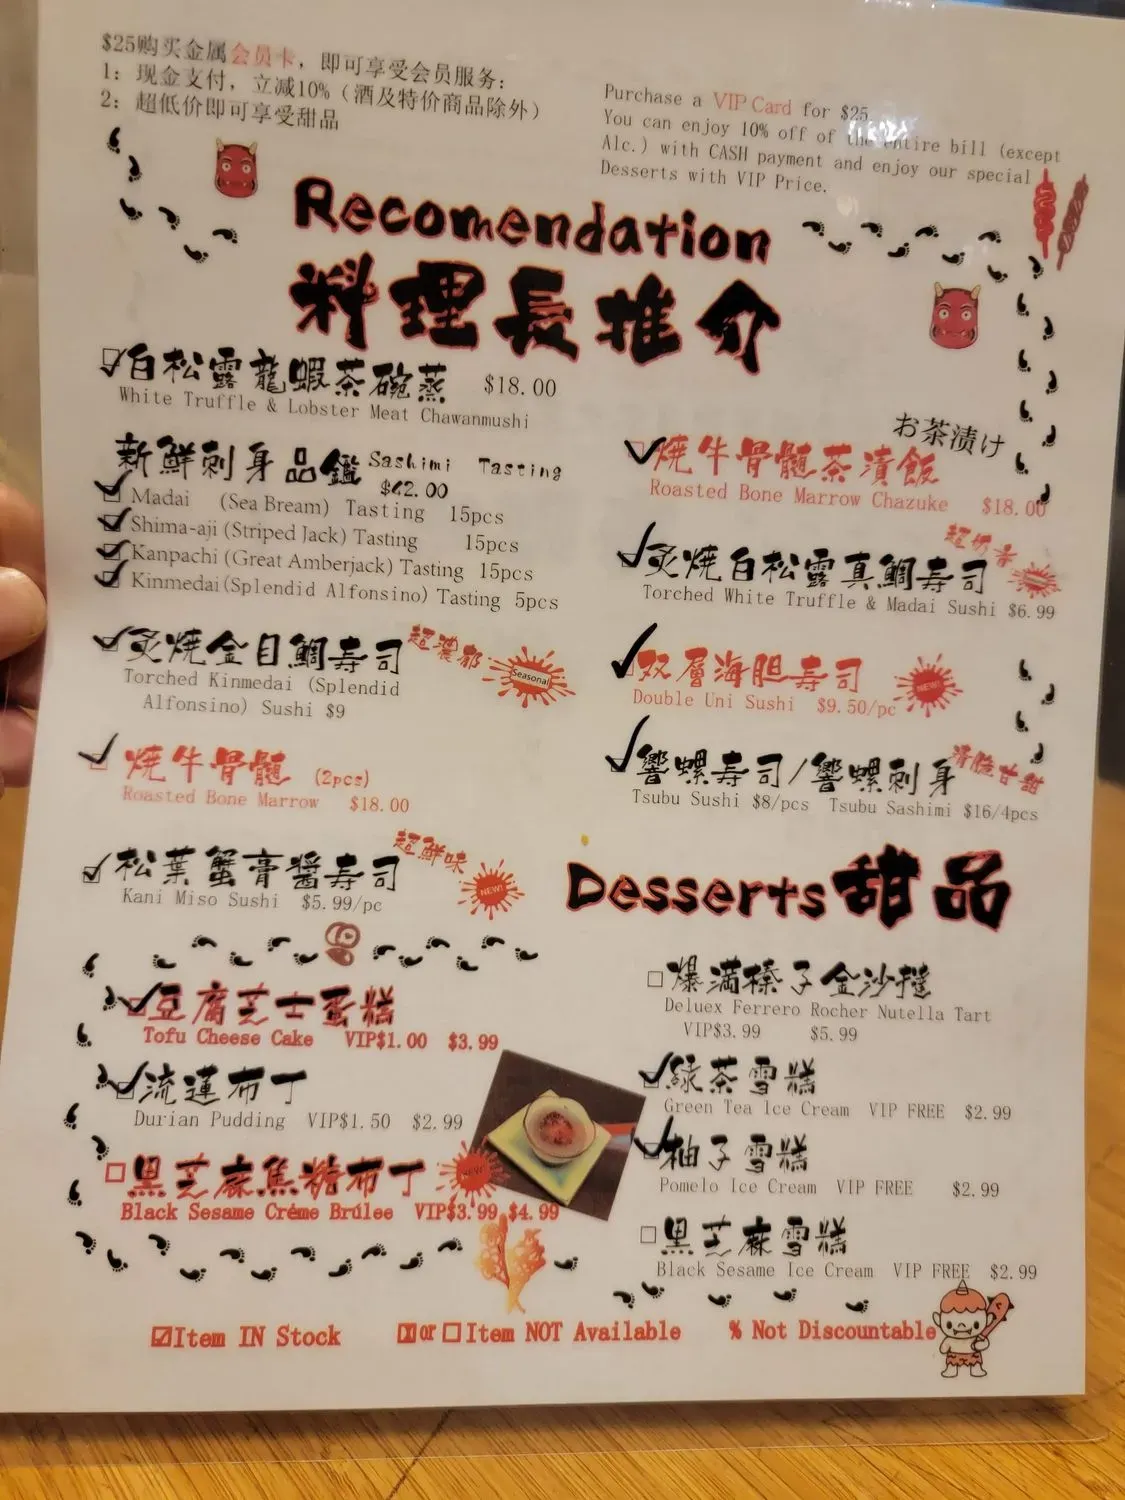 $25购买金属会员卡，即可享受会员服务：
1：现金支付，立减10%（酒及特价商品除外）
2：超低价即可享受甜品
Purchase a VIP Card for $25
You can enjoy 10% off of the entire bill (except
Alc.) with CASH payment and enjoy our special
Desserts with VIP Price.
Recomendation
料理長推介
白松露龍蝦茶碗蒸 $18.00
White Truffle & Lobster Meat Chawanmushi
新鮮刺身品鑑 Sashimi Tasting
$42.00
Madai (Sea Bream) Tasting 15pcs
Shima-aji (Striped Jack) Tasting 15pcs
Kanpachi (Great Amberjack) Tasting 15pcs
Kinmedai (Splendid Alfonsino) Tasting 5pcs
炙燒金目鯛寿司 超濃郁 Seasonal
Torched Kinmedai (Splendid
Alfonsino) Sushi $9
燒牛骨髓 (2pcs)
Roasted Bone Marrow $18.00
松葉蟹膏醬寿司 超鮮味 NEW!
Kani Miso Sushi $5.99/pc
お茶漬け
燒牛骨髓茶漬飯
Roasted Bone Marrow Chazuke $18.00
炙燒白松露真鯛寿司 超奶香
Torched White Truffle & Madai Sushi $6.99
双層海胆寿司 NEW!
Double Uni Sushi $9.50/pc
響螺寿司/響螺刺身 清脆甘甜
Tsubu Sushi $8/pcs Tsubu Sashimi $16/4pcs
Desserts 甜品
豆腐芝士蛋糕
Tofu Cheese Cake VIP$1.00 $3.99
流連布丁
Durian Pudding VIP$1.50 $2.99
黑芝麻焦糖布丁 NEW!
Black Sesame Créme Brúlee VIP$3.99 $4.99
爆滿榛子金沙撻
Deluex Ferrero Rocher Nutella Tart
VIP$3.99 $5.99
緑茶雪糕
Green Tea Ice Cream VIP FREE $2.99
柚子雪糕
Pomelo Ice Cream VIP FREE $2.99
黑芝麻雪糕
Black Sesame Ice Cream VIP FREE $2.99
☑Item IN Stock ☒or☐Item NOT Available % Not Discountable